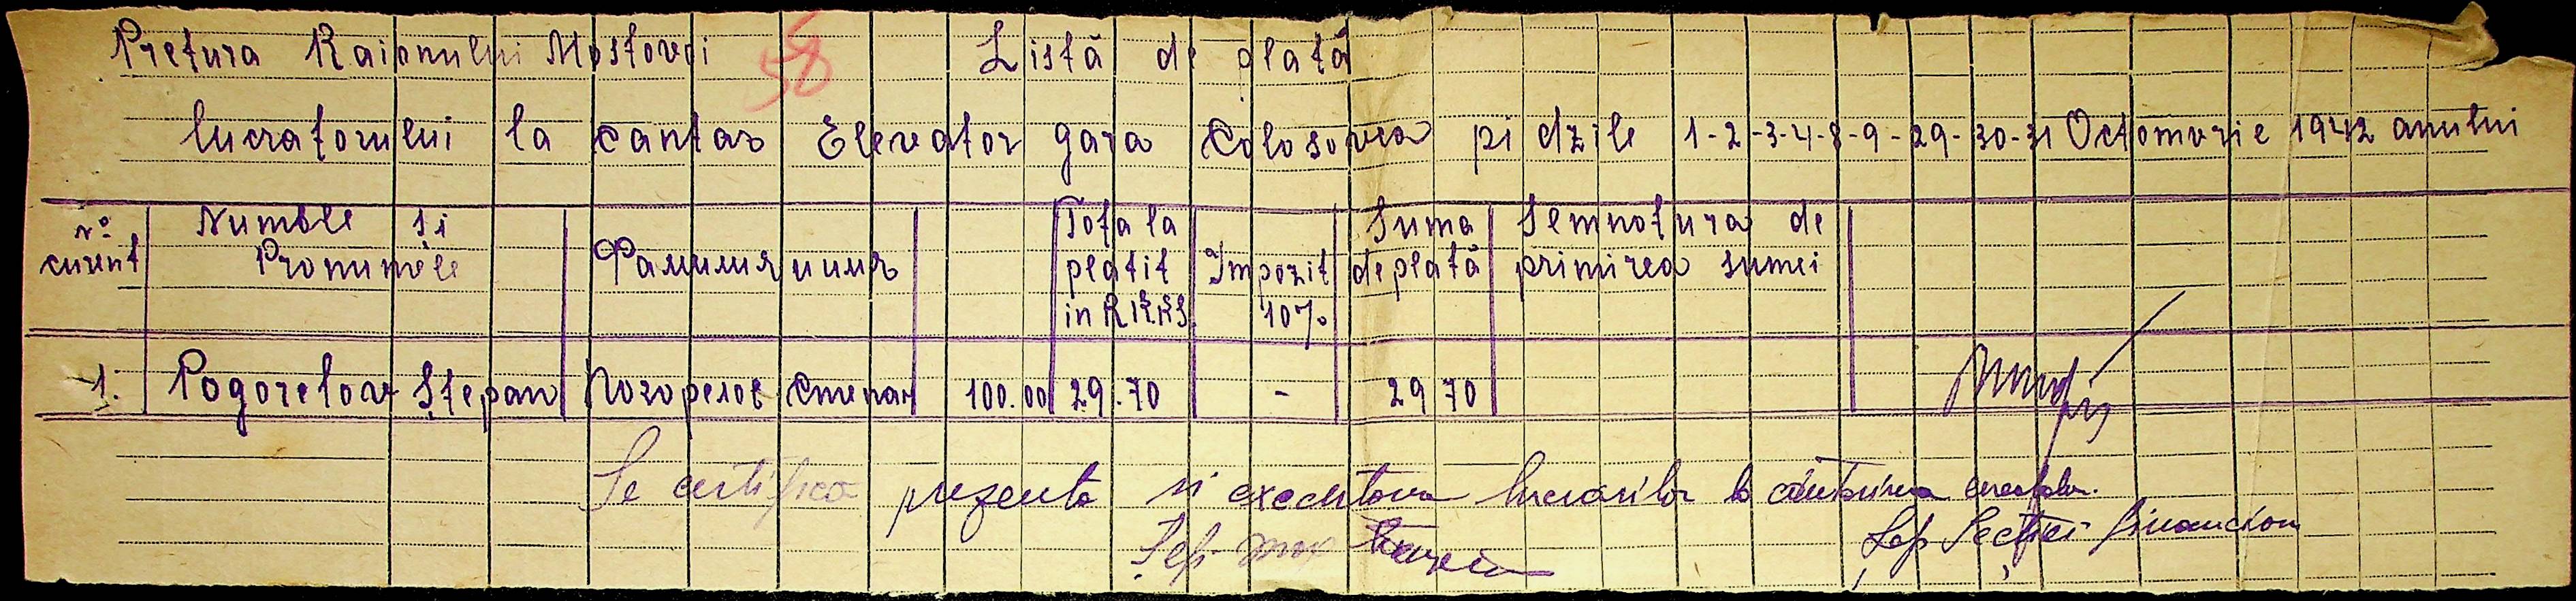 Pretura Raionului Mostovoi 58 Listă de plată
lucratorului la cantar Elevator gara Colosovca pi dzile 1-2-3-4-8-9-29-30-31 Octomvrie 1942 anului
No curent Numble și Pronumele Фамилия и имя Tota la platit in RKKS Impozit 10% Suma de plată Semnotura de primirea sumei
1. Pogorelov Ștepan Погорелов Степан 100.00 29.70 - 29 70
Se certifica prezenta si executarea lucrarilor la cântărirea cerealelor.
Șef Șef Secției financiare